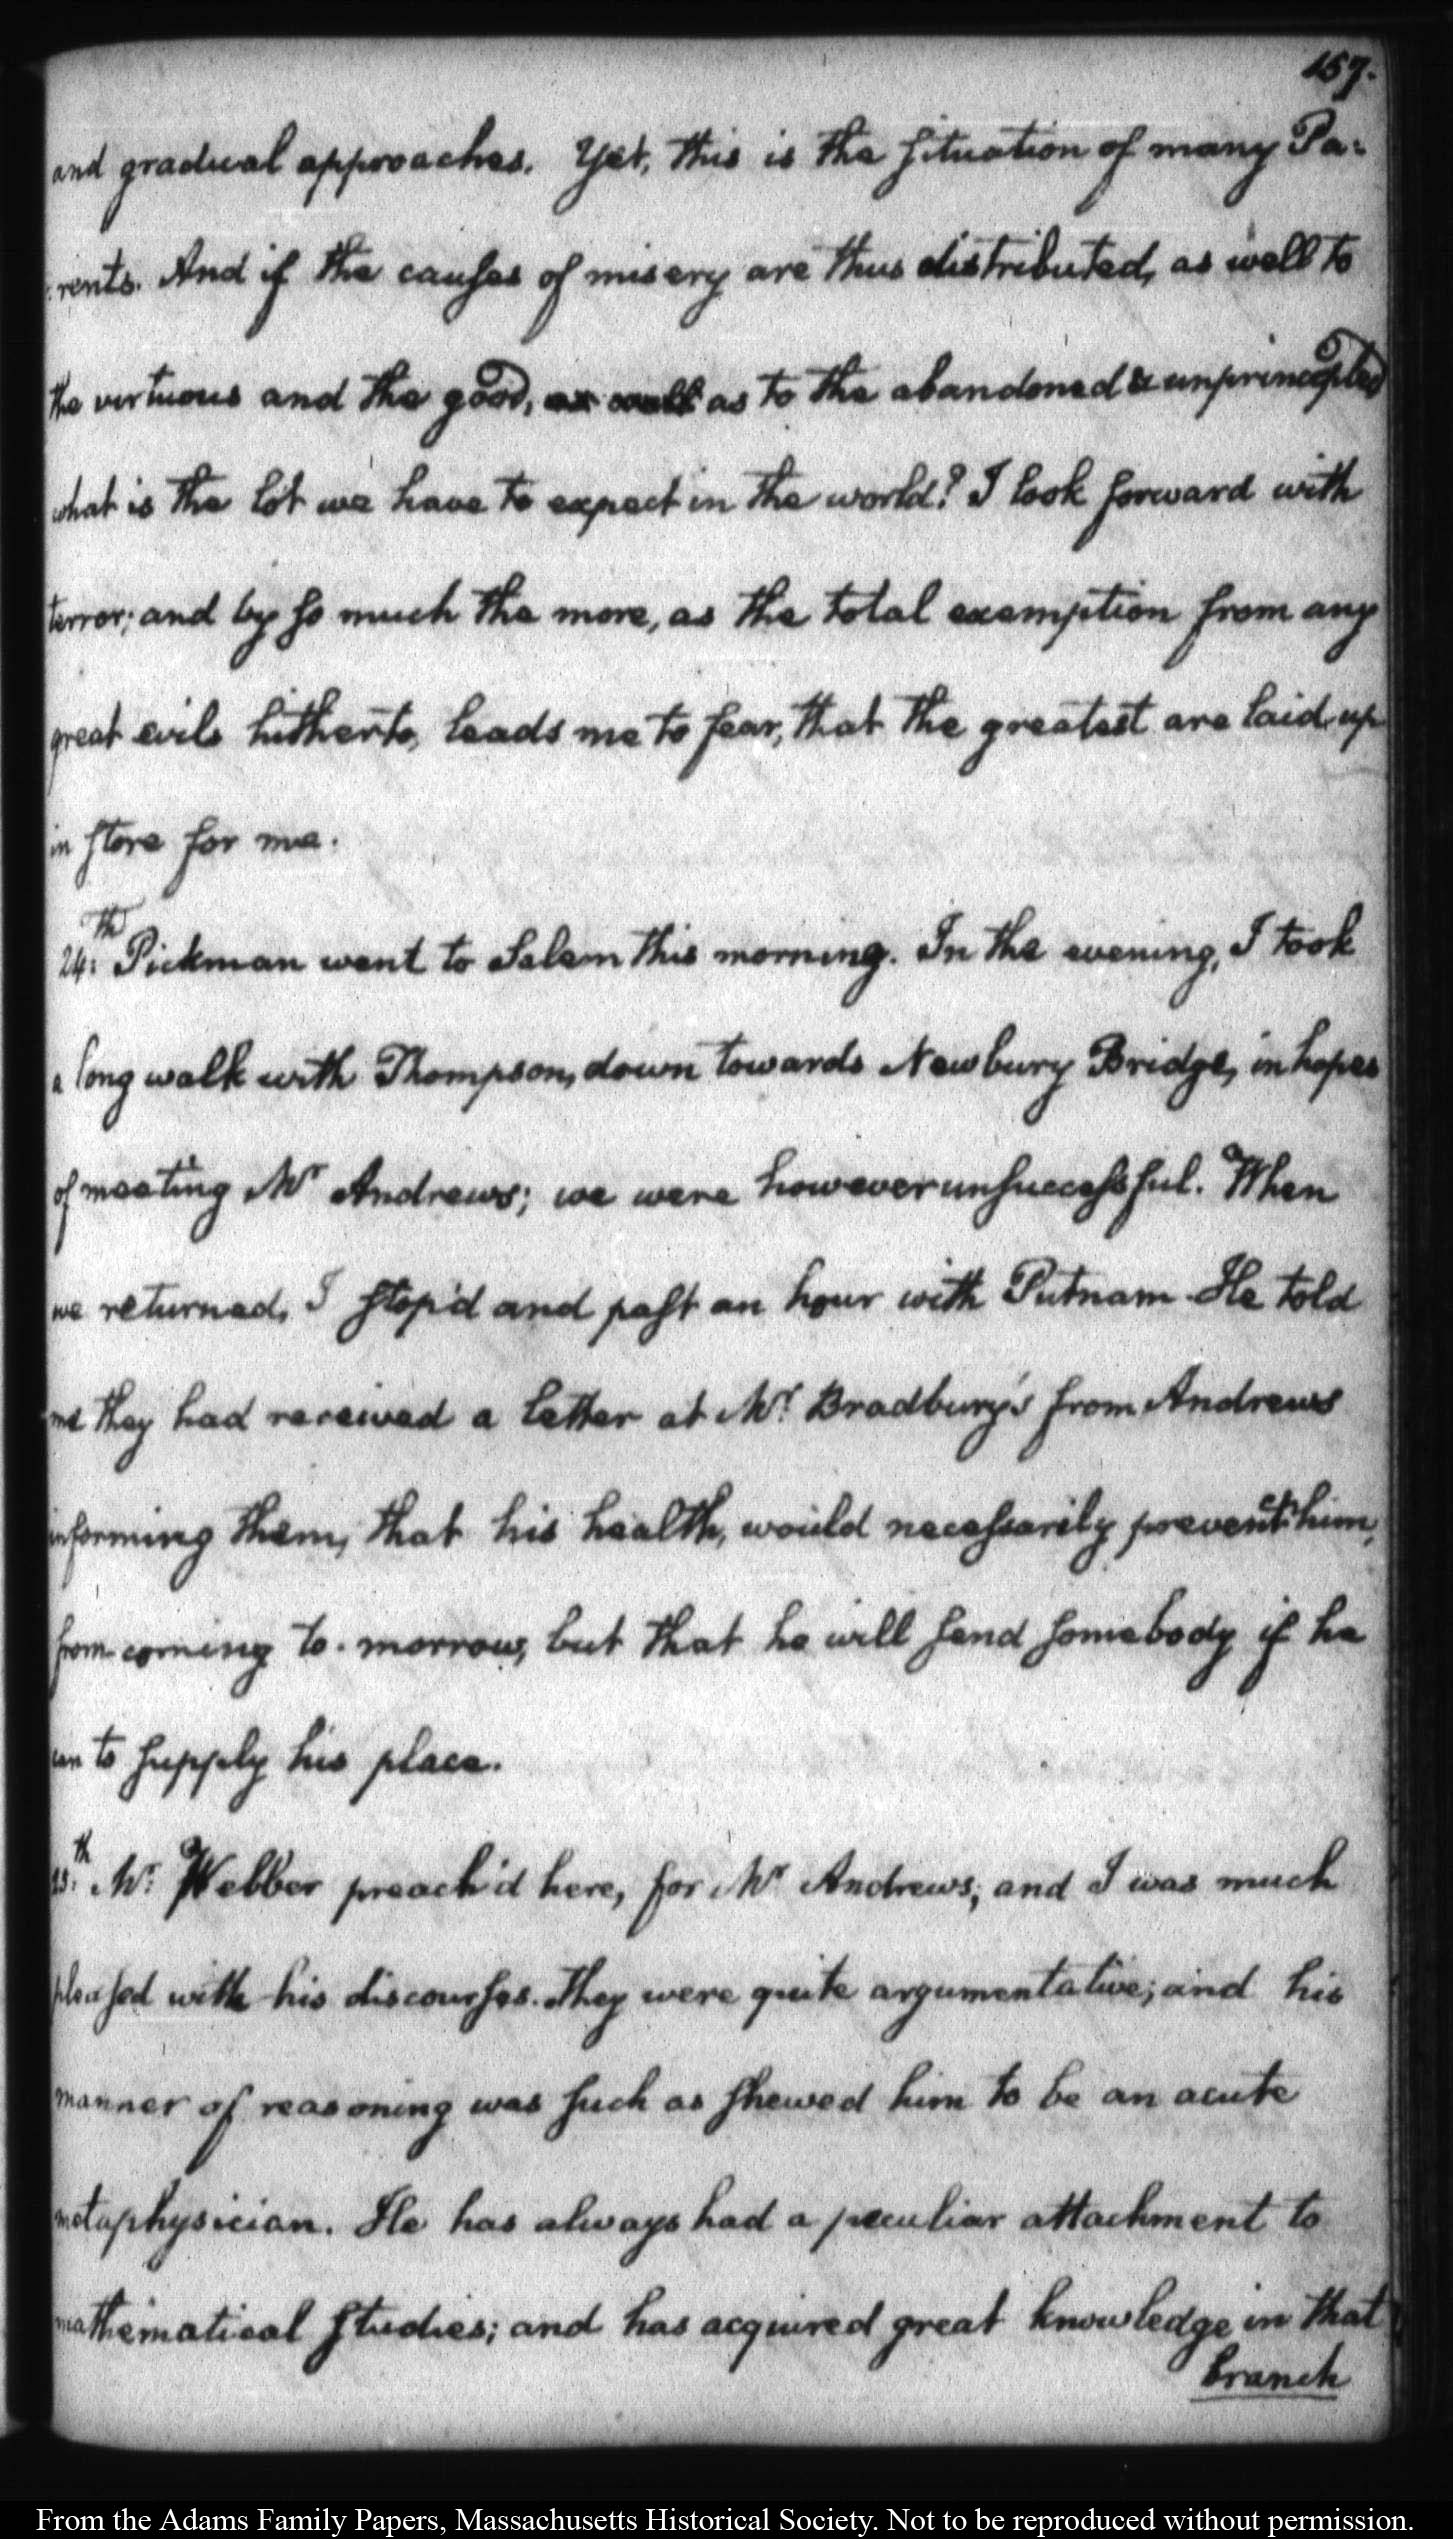 157.
and gradual approaches. Yet, this is the situation of many Pa:
:rents. And if the causes of misery are thus distributed, as well to
the virtuous and the good, as well as to the abandoned & unprincipled
what is the lot we have to expect in the world? I look forward with
terror; and by so much the more, as the total exemption from any
great evils hitherto, leads me to fear, that the greatest are laid up
in store for me.
24:th Pickman went to Salem this morning. In the evening, I took
a long walk with Thompson, down towards Newbury Bridge, in hopes
of meeting Mr Andrews; we were however unsuccessful. When
we returned, I stop'd and past an hour with Putnam. He told
me they had received a letter at Mr. Bradbury's from Andrews
informing them, that his health, would necessarily prevent him,
from coming to-morrow, but that he will send somebody if he
can to supply his place.
25:th Mr. Webber preach'd here, for Mr Andrews; and I was much
pleased with his discourses. They were quite argumentative; and his
manner of reasoning was such as shewed him to be an acute
metaphysician. He has always had a peculiar attachment to
mathematical studies; and has acquired great knowledge in that
branch
From the Adams Family Papers, Massachusetts Historical Society. Not to be reproduced without permission.